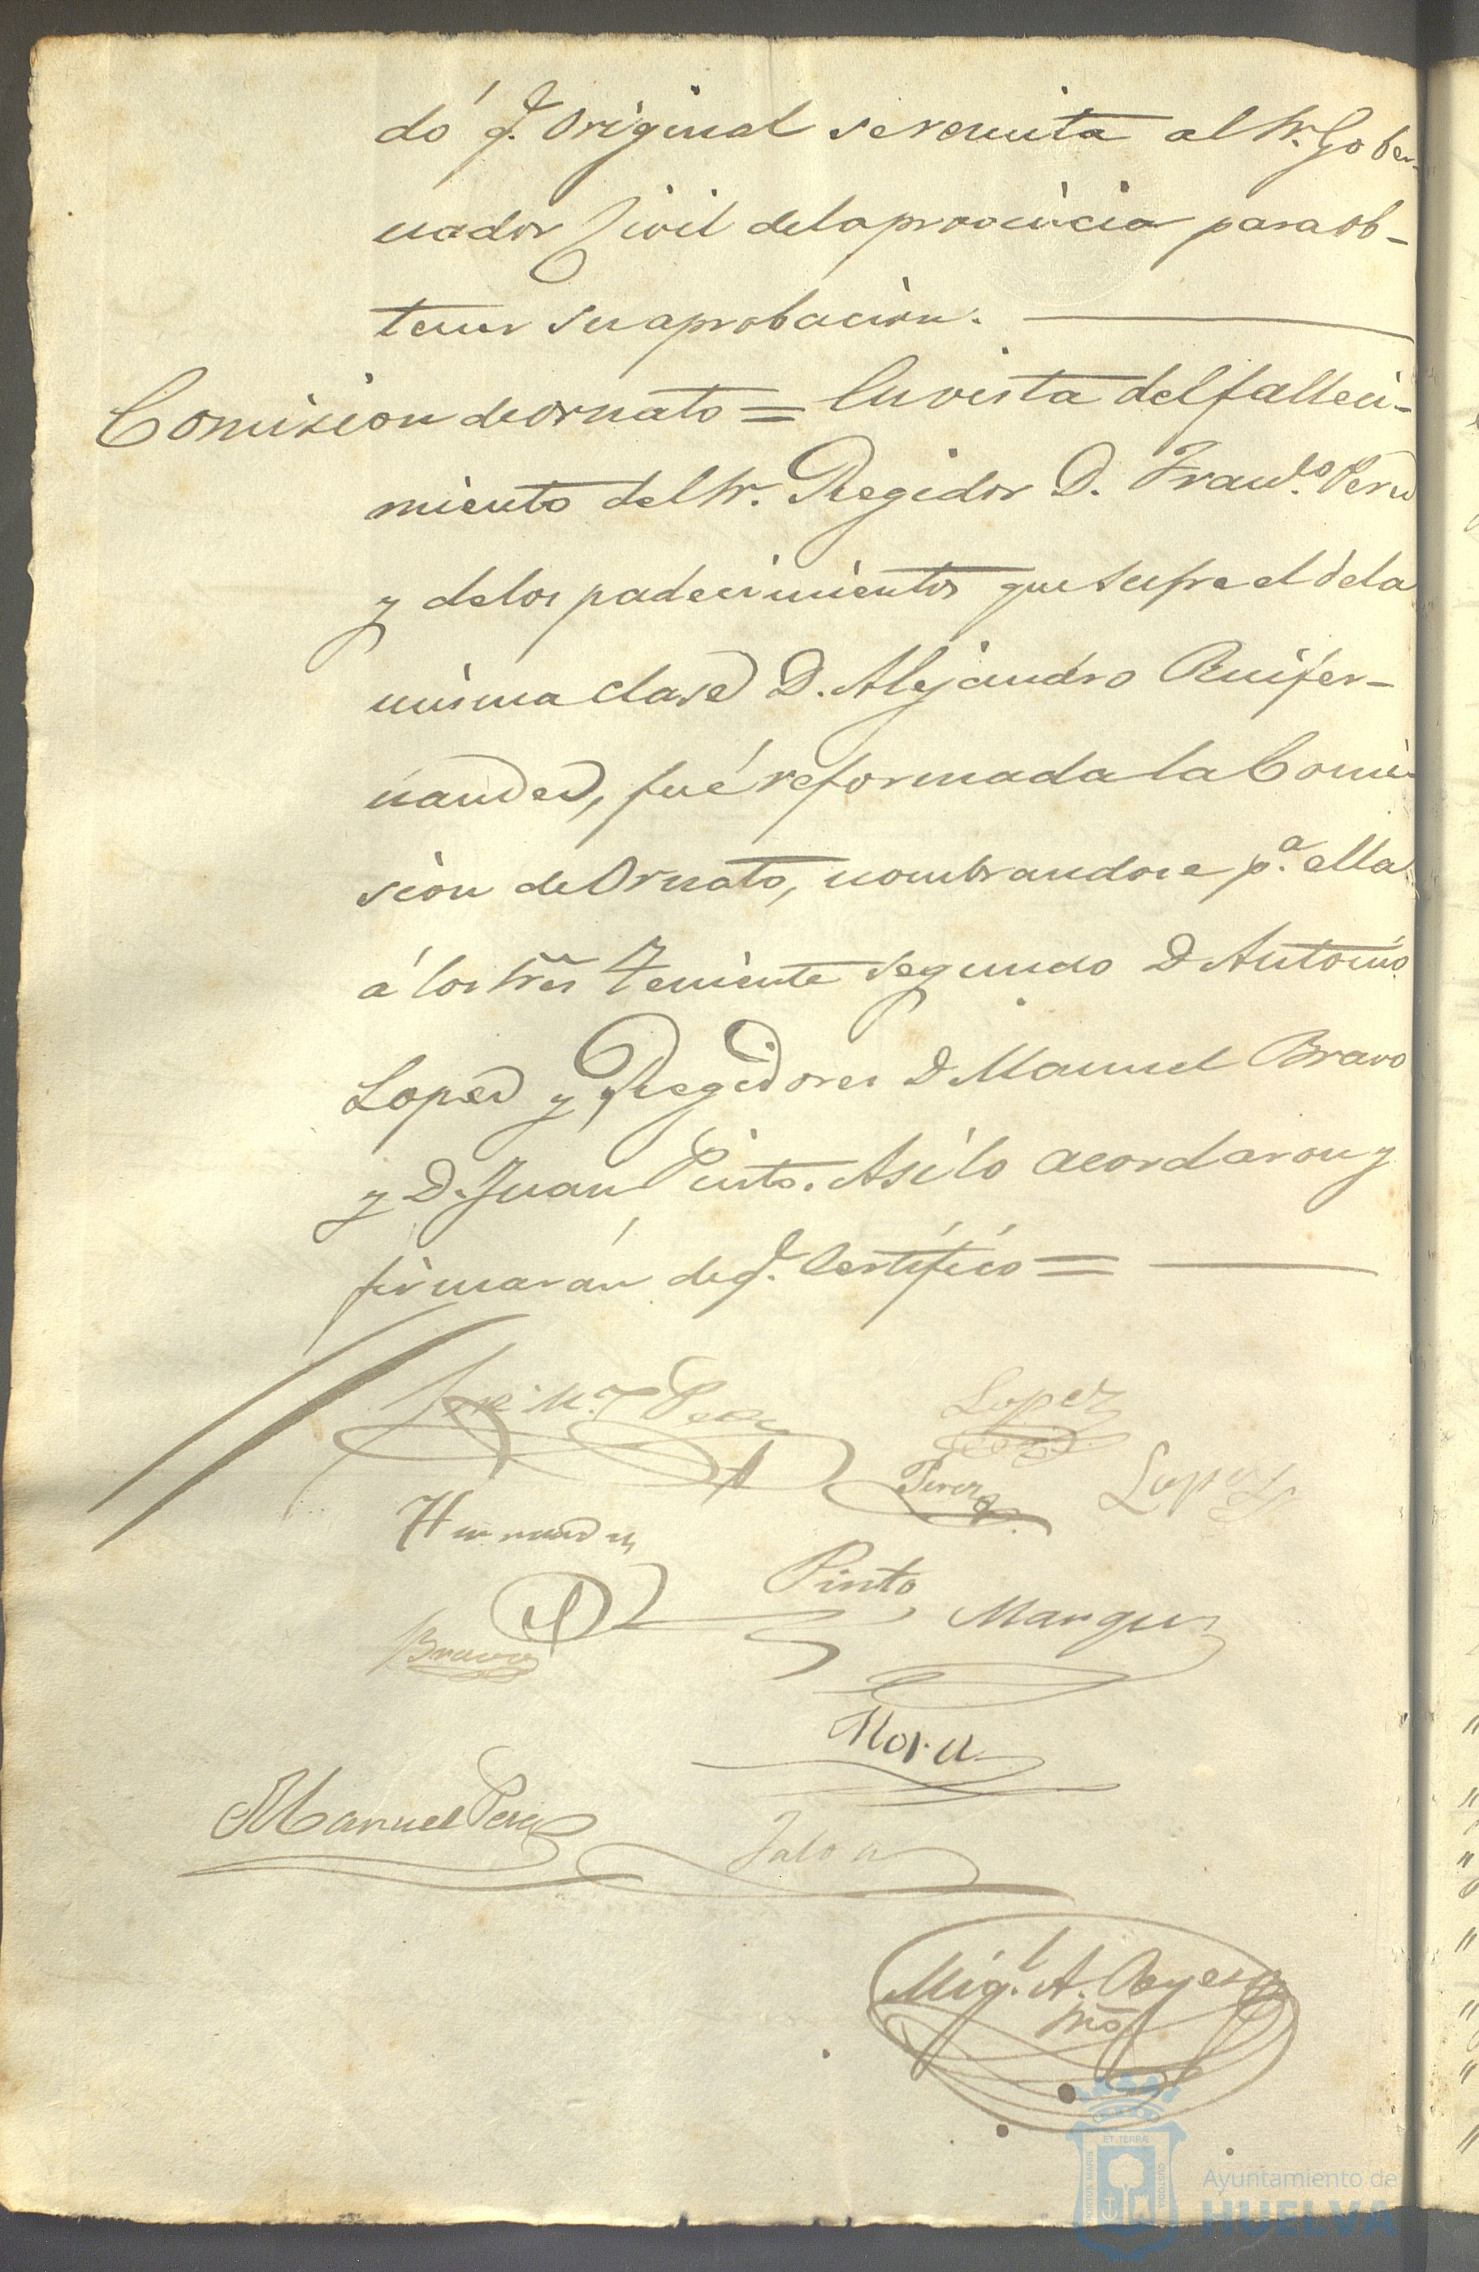 dó q.e Original se remita al Sr. Gober-
nador Civil de la provincia para ob-
tener su aprobacion.
Comision de ornato = En vista del falleci-
miento del Sr. Regidor D. Franc.co Perez
y de los padecimientos que sufre el de la
misma clase D. Alejandro Ruifer-
nandez, fué reformada la Comi-
sion de Ornato, nombrandose p.a ella
á los Sres Teniente segundo D Antonio
Lopez y Regidores D Manuel Bravo
y D. Juan Pinto. Asi lo acordaron y
firmarán de q.e Certífico =
Lopez
Perez
Lopez
Hernandez
Pinto
Marquez
Bravo
Mora
Manuel Perez
Mig.l A. Reyes
srio
PORTUS MARIS ET TERRÆ CUSTODIA
Ayuntamiento de
HUELVA